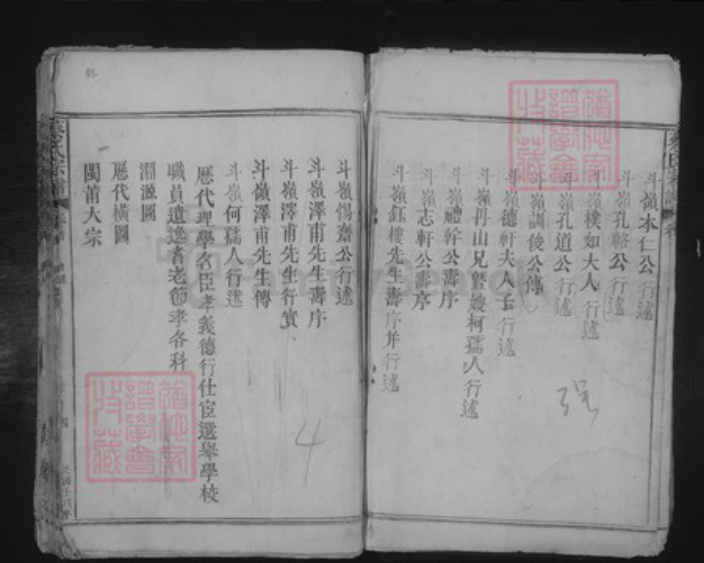 斗嶺本仁公行述
斗嶺孔輅公行述
斗嶺樸如大人行述
斗嶺孔道公行述
斗嶺訓後公傳
斗嶺德軒夫人子行述
斗嶺丹山兄暨嫂柯孺人行述
斗嶺公壽序
斗嶺志軒公壽序
斗嶺鈺樓先生壽序并行述
斗嶺惕齋公行述
斗嶺澤甫先生壽序
斗嶺澤甫先生行實
斗嶺澤甫先生傳
斗嶺何孺人行述
歷代理學名臣孝義德行仕宦選舉學校
職員遺逸耆老節孝各科
淵源圖
歷代橫圖
閩莆大宗
4